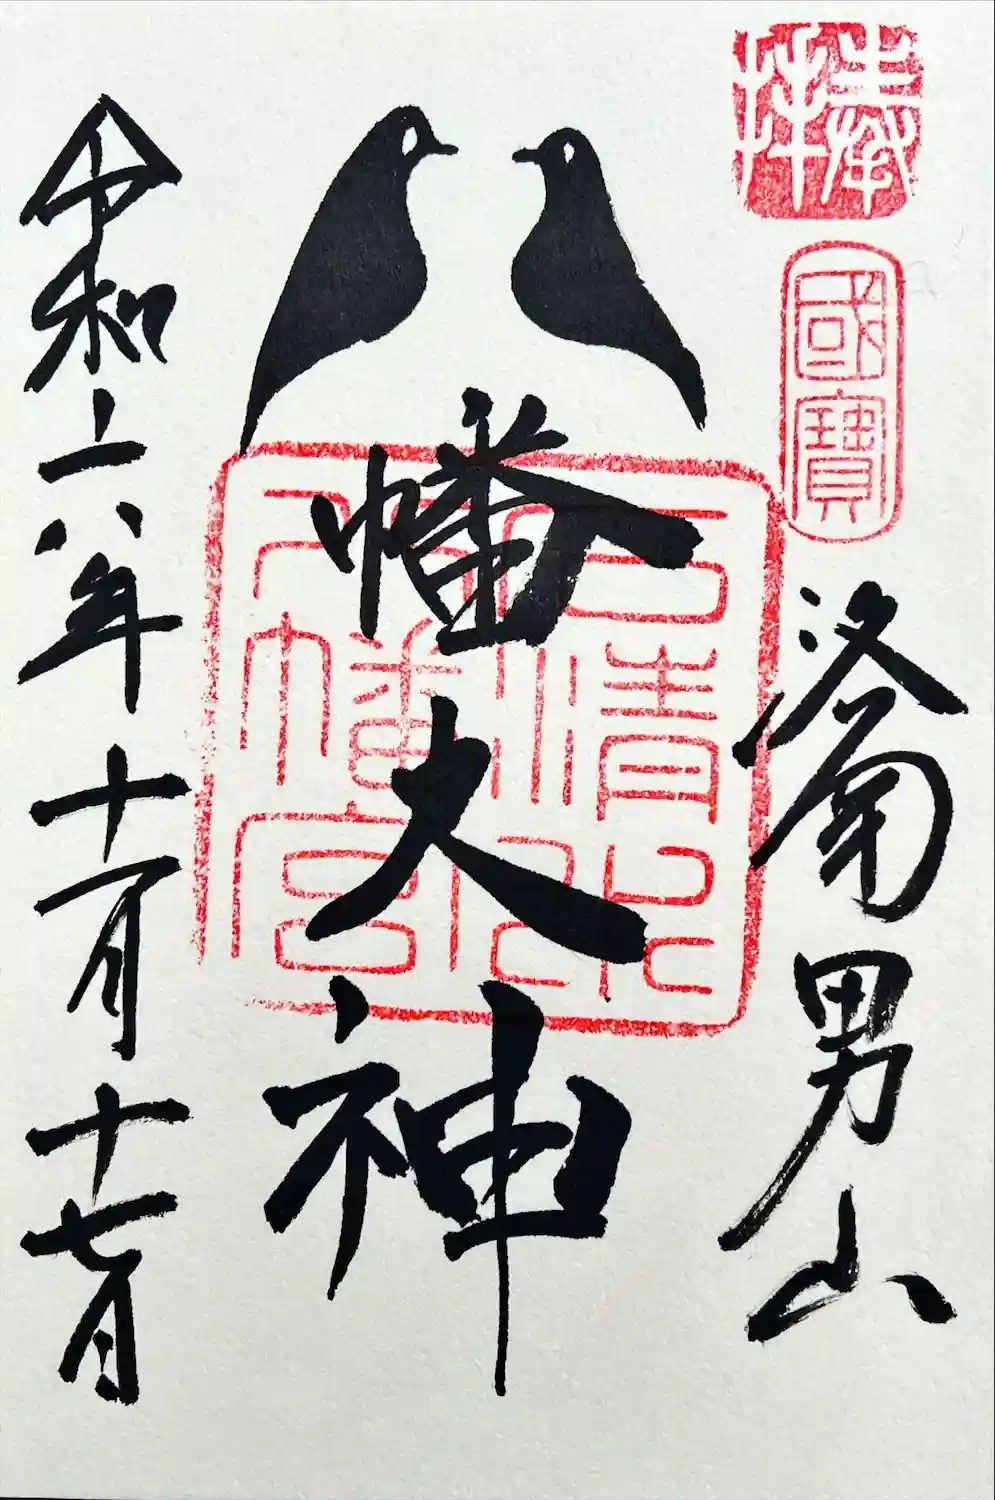 奉拝
國寶
洛南男山
八幡大神
石清水
八幡宮
令和六年十一月十七日